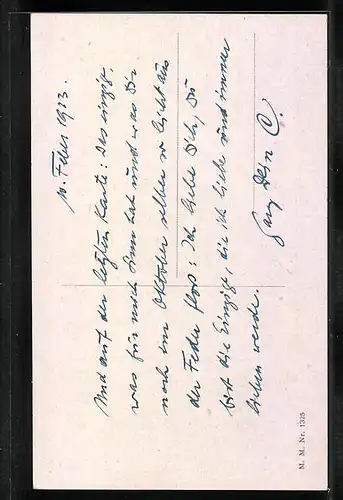 10. Feber 1923.
Und auf der letzten Karte: Das einzige,
was für mich Sinn hat und was Dir
noch im Oktober selber so leicht aus
der Feder floss: Ich liebe Dich, Du
bist die Einzige, die ich liebe und immer
lieben werde.
Ganz Dein C.
M. M. Nr. 1325